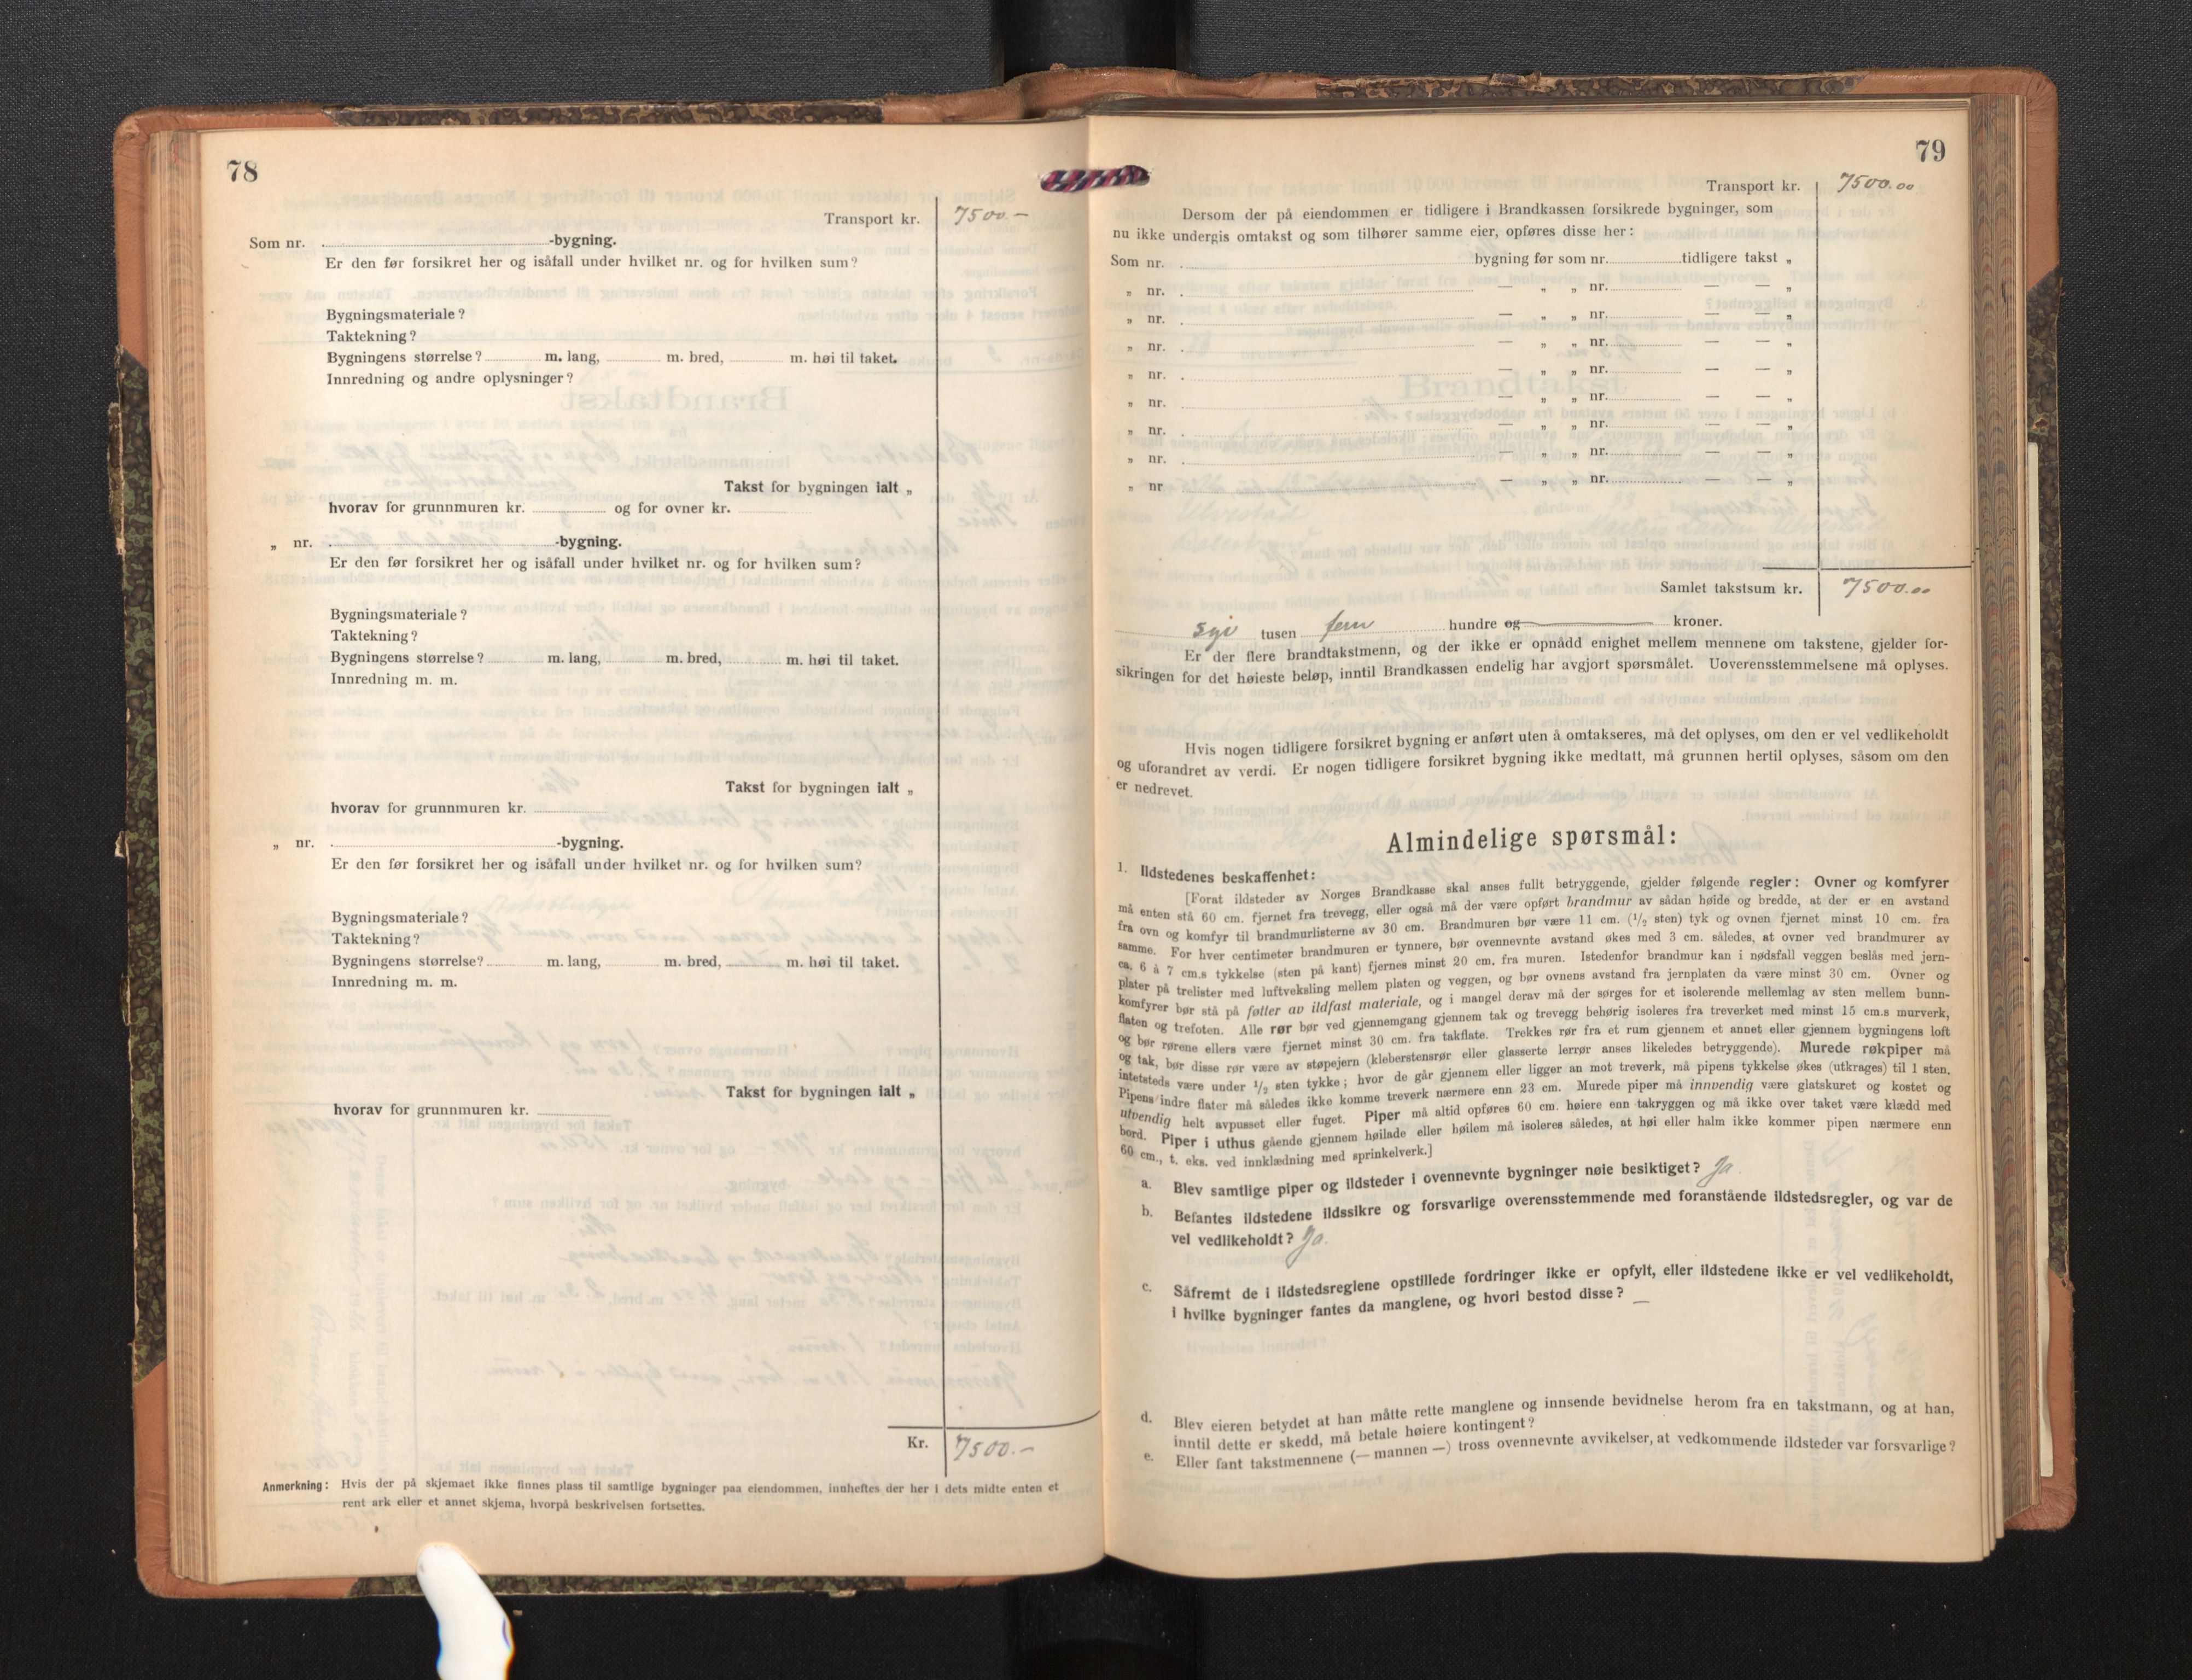 78
Transport kr. 7500.—
Som nr. -bygning.
Er den før forsikret her og isåfall under hvilket nr. og for hvilken sum?
Bygningsmateriale?
Taktekning?
Bygningens størrelse? m. lang, m. bred, m. høi til taket.
Innredning og andre oplysninger?
Takst for bygningen ialt „
hvorav for grunnmuren kr. og for ovner kr.
„ nr. -bygning.
Er den før forsikret her og isåfall under hvilket nr. og for hvilken sum?
Bygningsmateriale?
Taktekning?
Bygningens størrelse? m. lang, m. bred, m. høi til taket.
Innredning m. m.
Takst for bygningen ialt „
hvorav for grunnmuren kr.
„ nr. -bygning.
Er den før forsikret her og isåfall under hvilket nr. og for hvilken sum?
Bygningsmateriale?
Taktekning?
Bygningens størrelse? m. lang, m. bred, m. høi til taket.
Innredning m. m.
Takst for bygningen ialt „
hvorav for grunnmuren kr.
Kr. 7500.—
Anmerkning: Hvis der på skjemaet ikke finnes plass til samtlige bygninger paa eiendommen, innheftes der her i dets midte enten et
rent ark eller et annet skjema, hvorpå beskrivelsen fortsettes.
79
Transport kr. 7500.00
Dersom der på eiendommen er tidligere i Brandkassen forsikrede bygninger, som
nu ikke undergis omtakst og som tilhører samme eier, opføres disse her:
Som nr. bygning før som nr. tidligere takst „
„ nr. — „ „ nr. — — „
„ nr. — „ „ nr. — — „
„ nr. — „ „ nr. — — „
„ nr. — „ „ nr. — — „
„ nr. — „ „ nr. — — „
„ nr. — „ „ nr. — — „
„ nr. — „ „ nr. — — „
„ nr — „ „ nr. — — „
Samlet takstsum kr. 7500.00
syv tusen fem hundre og kroner.
Er der flere brandtakstmenn, og der ikke er opnådd enighet mellem mennene om takstene, gjelder for-
sikringen for det høieste beløp, inntil Brandkassen endelig har avgjort spørsmålet. Uoverensstemmelsene må oplyses.
Hvis nogen tidligere forsikret bygning er anført uten å omtakseres, må det oplyses, om den er vel vedlikeholdt
og uforandret av verdi. Er nogen tidligere forsikret bygning ikke medtatt, må grunnen hertil oplyses, såsom om den
er nedrevet.
Almindelige spørsmål:
1. Ildstedenes beskaffenhet:
[Forat ildsteder av Norges Brandkasse skal anses fullt betryggende, gjelder følgende regler: Ovner og komfyrer
må enten stå 60 cm. fjernet fra trevegg, eller også må der være opført brandmur av sådan høide og bredde, at der er en avstand
fra ovn og komfyr til brandmurlisterne av 30 cm. Brandmuren bør være 11 cm. (1/2 sten) tyk og ovnen fjernet minst 10 cm. fra
samme. For hver centimeter brandmuren er tynnere, bør ovennevnte avstand økes med 3 cm. således, at ovner ved brandmurer av
ca. 6 à 7 cm.s tykkelse (sten på kant) fjernes minst 20 cm. fra muren. Istedenfor brandmur kan i nødsfall veggen beslås med jern-
plater på trelister med luftveksling mellem platen og veggen, og bør ovnens avstand fra jernplaten da være minst 30 cm. Ovner og
komfyrer bør stå på føtter av ildfast materiale, og i mangel derav må der sørges for et isolerende mellemlag av sten mellem bunn-
flaten og trefoten. Alle rør bør ved gjennemgang gjennem tak og trevegg behørig isoleres fra treverket med minst 15 cm.s murverk,
og bør rørene ellers være fjernet minst 30 cm. fra takflate. Trekkes rør fra et rum gjennem et annet eller gjennem bygningens loft
og tak, bør disse rør være av støpejern (kleberstensrør eller glasserte lerrør anses likeledes betryggende). Murede røkpiper må
intetsteds være under 1/2 sten tykke; hvor de går gjennem eller ligger an mot treverk, må pipens tykkelse økes (utkrages) til 1 sten.
Pipens indre flater må således ikke komme treverk nærmere enn 23 cm. Murede piper må innvendig være glatskuret og kostet og
utvendig helt avpusset eller fuget. Piper må altid opføres 60 cm. høiere enn takryggen og må ikke over taket være klædd med
bord. Piper i uthus gående gjennem høilade eller høilem må isoleres således, at høi eller halm ikke kommer pipen nærmere enn
60 cm., t. eks. ved innklædning med sprinkelverk.]
a. Blev samtlige piper og ildsteder i ovennevnte bygninger nøie besiktiget? Ja
b. Befantes ildstedene ildssikre og forsvarlige overensstemmende med foranstående ildstedsregler, og var de
vel vedlikeholdt? Ja.
c. Såfremt de i ildstedsreglene opstillede fordringer ikke er opfylt, eller ildstedene ikke er vel vedlikeholdt,
i hvilke bygninger fantes da manglene, og hvori bestod disse? —
d. Blev eieren betydet at han måtte rette manglene og innsende bevidnelse herom fra en takstmann, og at han,
inntil dette er skedd, må betale høiere kontingent?
e. Eller fant takstmennene (— mannen —) tross ovennevnte avvikelser, at vedkommende ildsteder var forsvarlige?